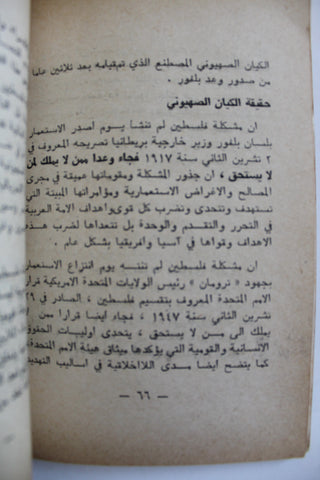 الكيان الصهيوني المصطنع الذي تم قيامه بعد ثلاثين عاما
من صدور وعد بلفور .
حقيقة الكيان الصهيوني
ان مشكلة فلسطين لم تنشأ يوم اصدر الاستعمار
بلسان بلفور وزير خارجية بريطانيا تصريحه المعروف في
٢ تشرين الثاني سنة ١٩١٧ فجاء وعدا ممن لا يملك لمن لا
يستحق ، ان جذور المشكلة ومقوماتها عميقة في مجرى
المصالح والاغراض الاستعمارية ومؤامراتها المبيتة التي
تستهدف وتتحدى وتضرب كل قوى واهداف الامة العربية
في التحرر والتقدم والوحدة بل تتعداها لضرب هذه
الاهداف وقواها في آسيا وافريقيا بشكل عام .
ان مشكلة فلسطين لم تنته يوم انتزاع الاستعمار
بجهود « ترومان » رئيس الولايات المتحدة الامريكية قرار
الامم المتحدة المعروف بتقسيم فلسطين ، الصادر في ٢٩
تشرين الثاني سنة ١٩٤٧ ، فجاء ايضا قرارا ممن لا
يملك الى من لا يستحق ، يتحدى اوليات الحقوق
الانسانية والقومية التي يؤكدها ميثاق هيئة الامم المتحدة،
كما يتضح ايضا مدى اللااخلاقية في اساليب التهديد
— ٦٦ —